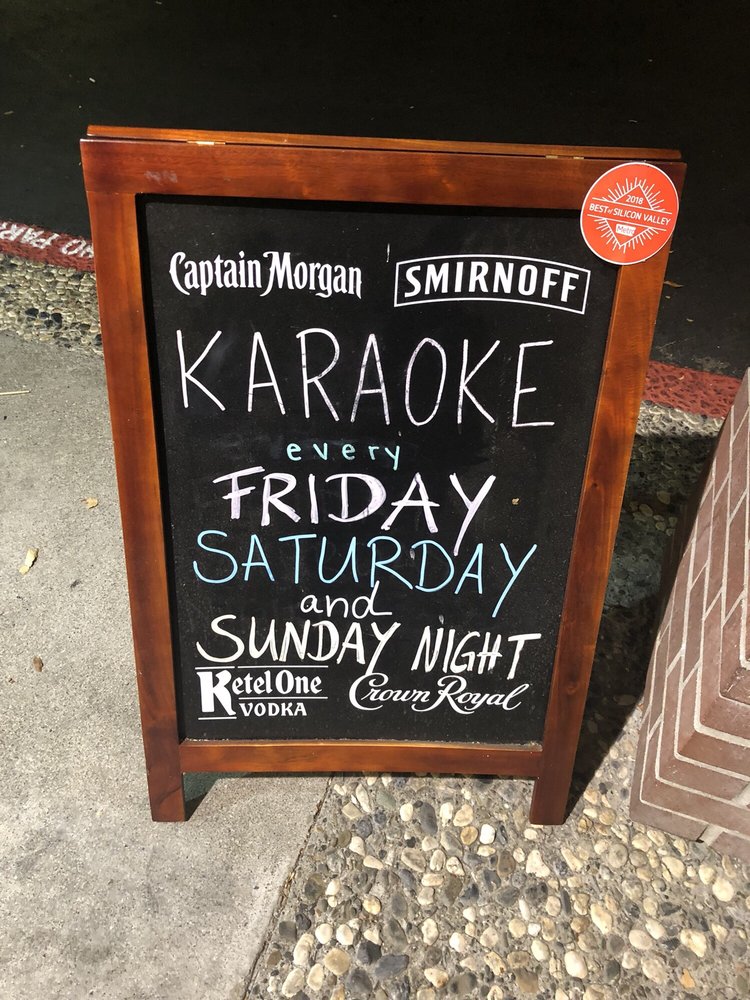 2018
BEST of SILICON VALLEY
Metro
Captain Morgan
SMIRNOFF
KARAOKE
every
FRIDAY
SATURDAY
and
SUNDAY NIGHT
Ketel One
VODKA
Crown Royal
NO PAR